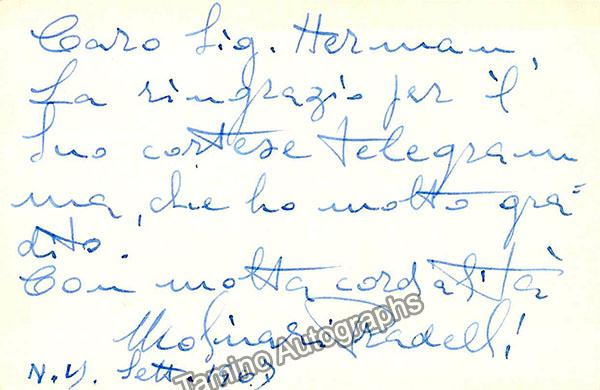 Caro Sig. Herman,
La ringrazio per il
Suo cortese telegram
ma, che ho molto gra=
dito.
Con molta cordialità
Molinari Pradelli
N.Y. Sett. 1963
Tamino Autographs